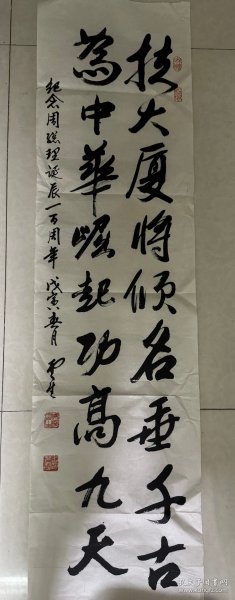 扶大厦将倾名垂千古
为中華崛起功高九天
纪念周总理诞辰一百周年 戊寅春月